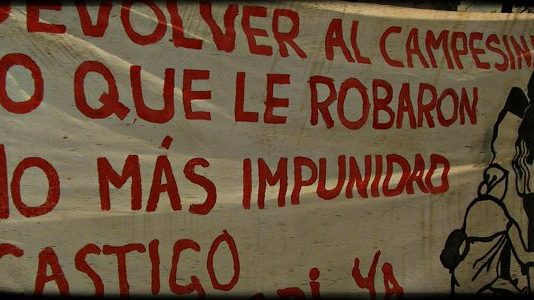 DEVOLVER AL CAMPESIN
LO QUE LE ROBARON
NO MÁS IMPUNIDAD
CASTIGO
YA